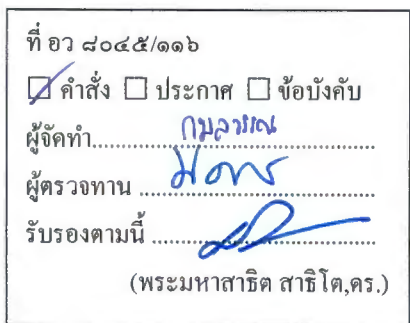 ที่ อว ๘๐๔๕/๑๑๖
☑ คำสั่ง ☐ ประกาศ ☐ ข้อบังคับ
ผู้จัดทำ กมลวรรณ
ผู้ตรวจทาน
รับรองตามนี้
(พระมหาสาธิต สาธิโต,ดร.)